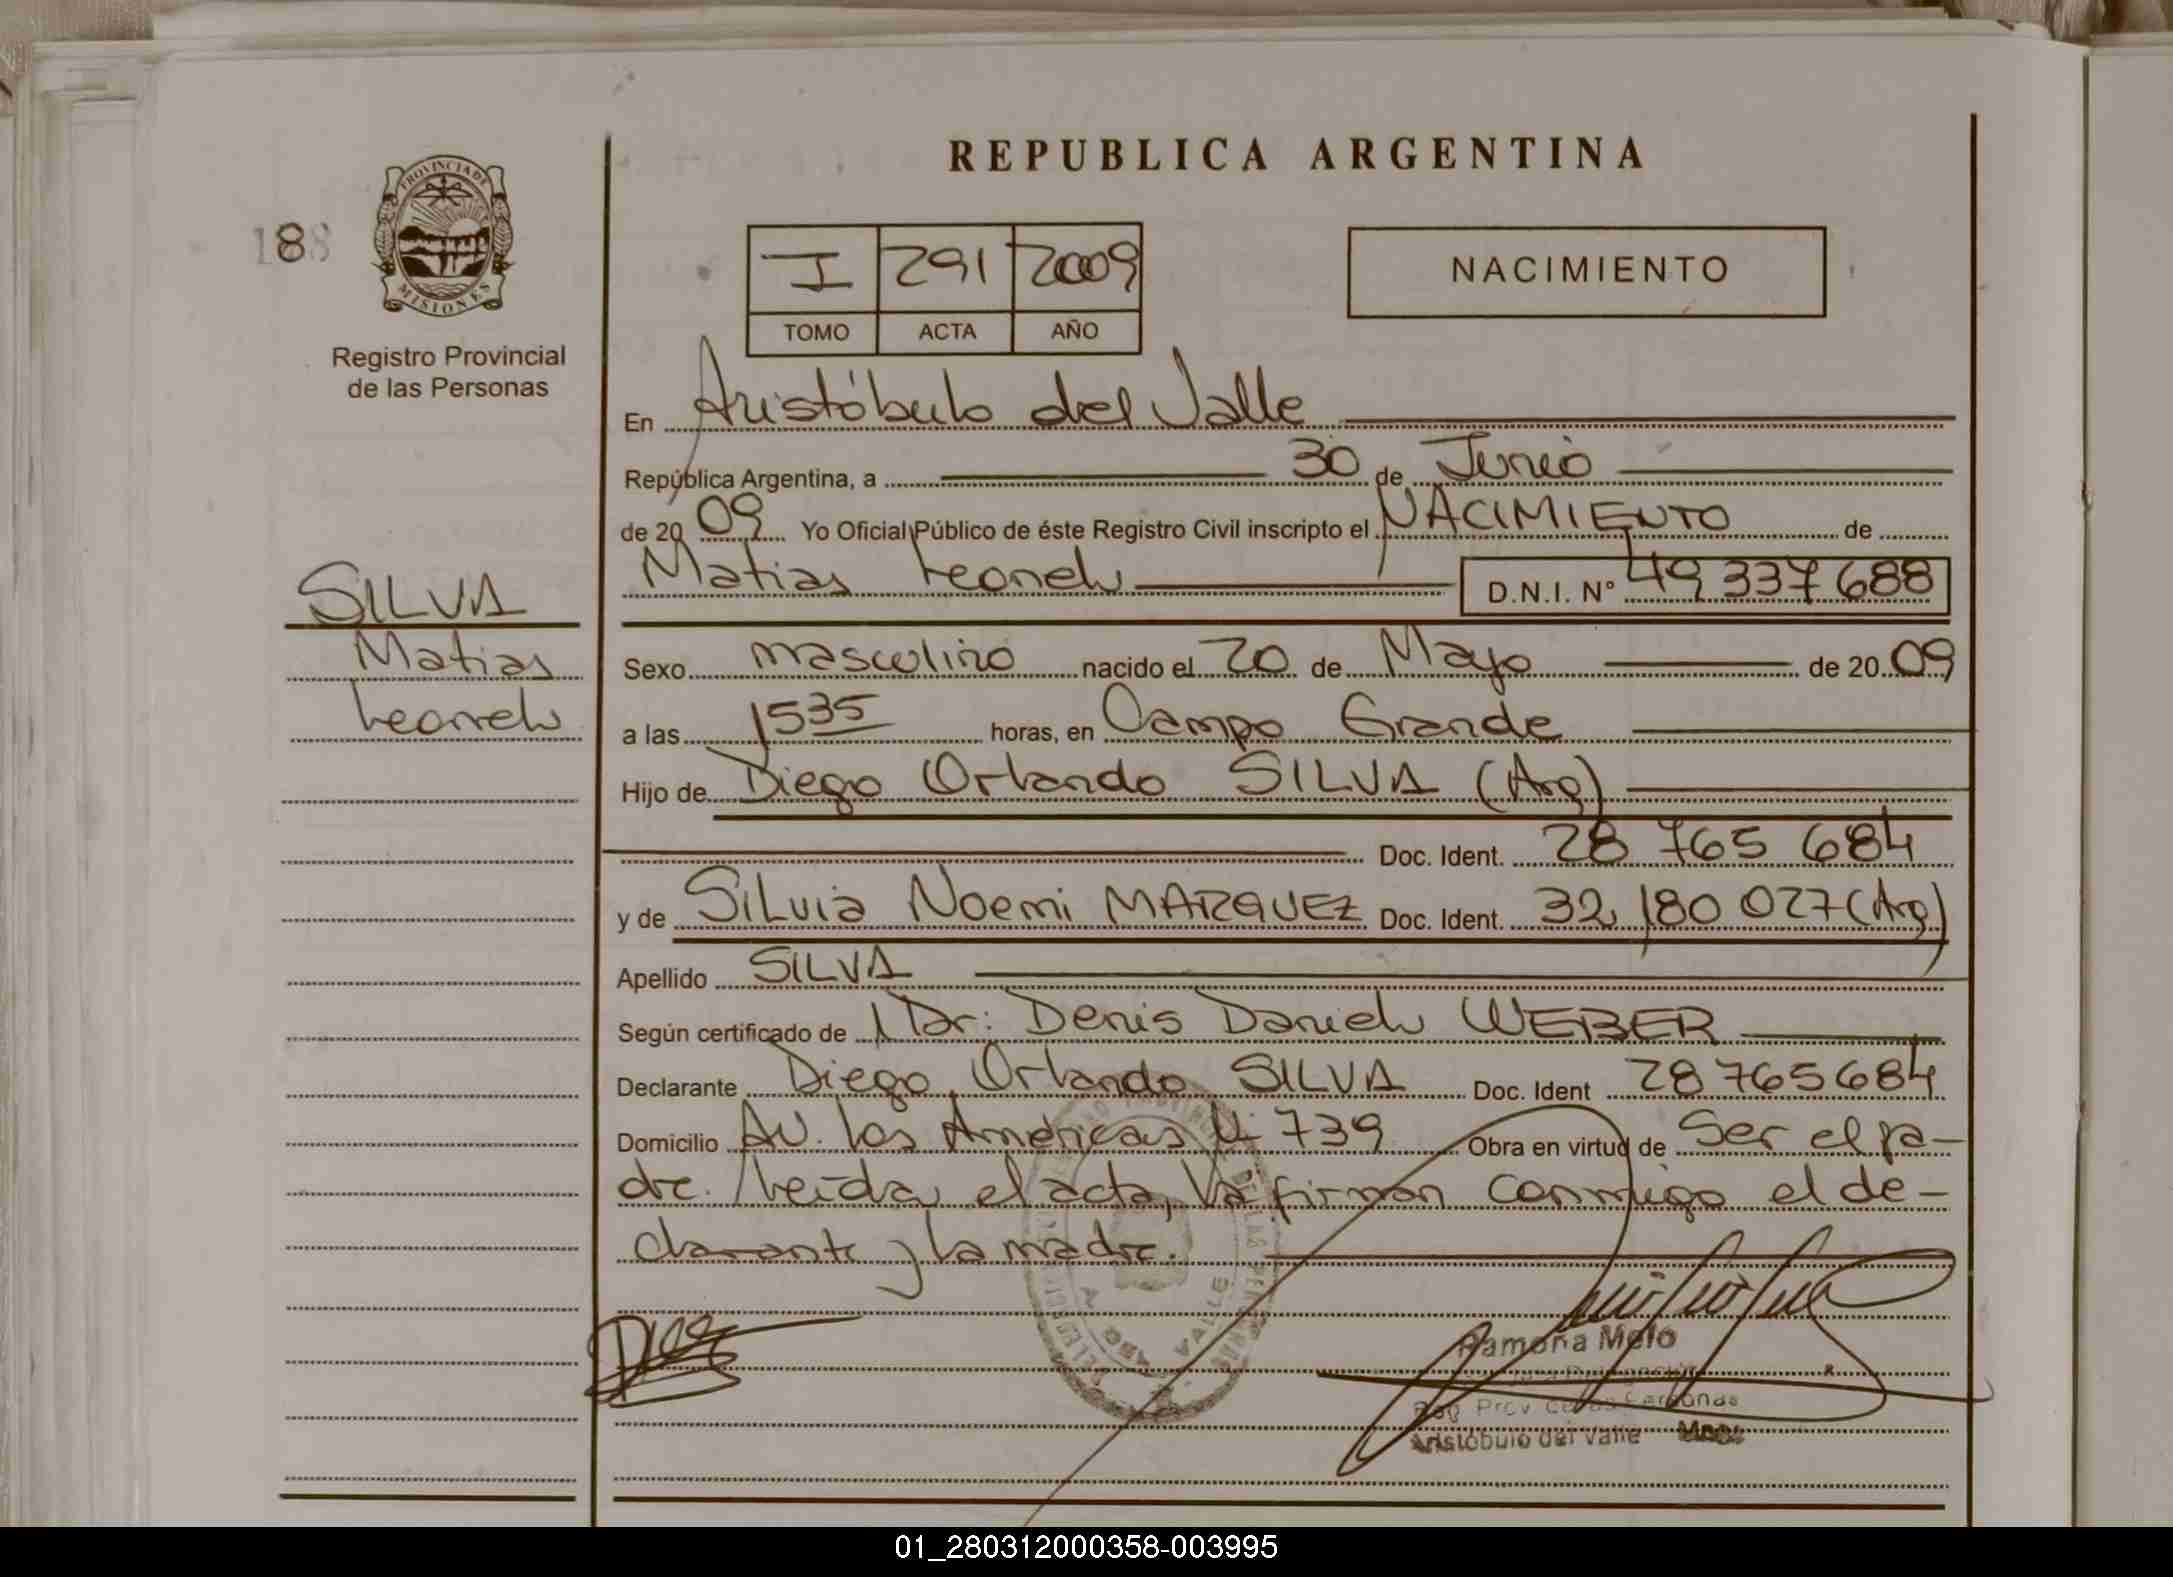 REPUBLICA ARGENTINA
188
PROVINCIA DE
MISIONES
Registro Provincial
de las Personas
I 291 2009
TOMO ACTA AÑO
NACIMIENTO
En Aristóbulo del Valle
República Argentina, a 30 de Junio
de 2009 Yo Oficial Público de éste Registro Civil inscripto el NACIMIENTO de
Matias Leonel D.N.I. Nº 49 337 688
SILVA
Matias
Leonel
Sexo masculino nacido el 20 de Mayo de 2009
a las 1535 horas, en Campo Grande
Hijo de Diego Orlando SILVA (Arg)
Doc. Ident. 28 765 684
y de Silvia Noemi MARQUEZ Doc. Ident. 32 180 027 (Arg)
Apellido SILVA
Según certificado de Dr: Denis Daniel WEBER
Declarante Diego Orlando SILVA Doc. Ident 28765684
Domicilio Av. Las Américas N 739 Obra en virtud de Ser el pa-
dre. Leída el acta, la firman conmigo el de-
clarante y la madre.
Ramona Melo
Reg. Prov. de las Personas
Aristóbulo del Valle Mnes
01_280312000358-003995